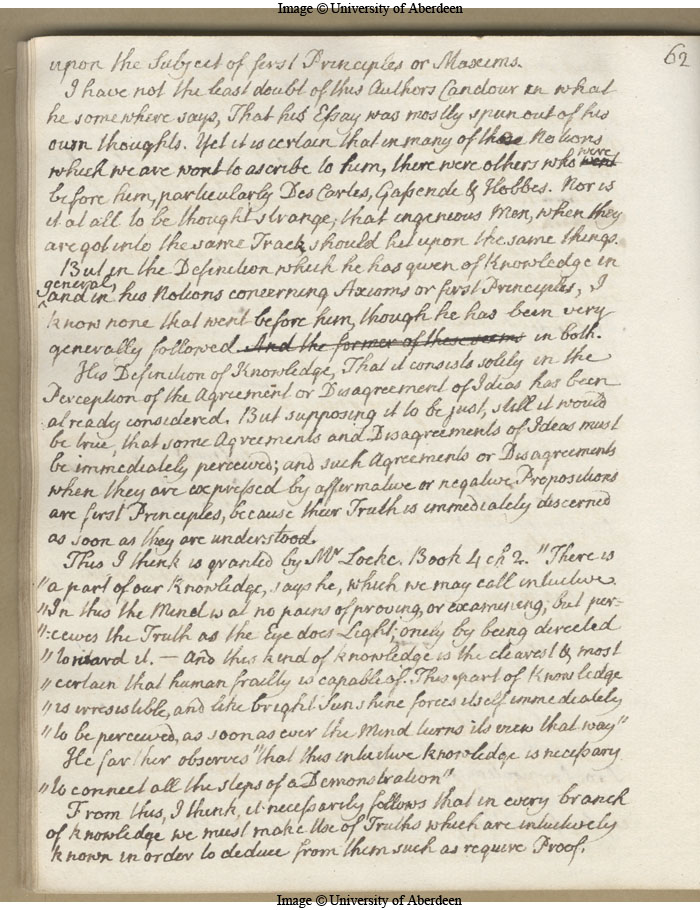 Image © University of Aberdeen
62
upon the Subject of first Principles or Maxims.
I have not the least doubt of this Authors Candour in what
he somewhere says, That his Essay was mostly spun out of his
own thoughts. Yet it is certain that in many of those Notions
which we are wont to ascribe to him, there were others who went were
before him, particularly Des Cartes, Gassende & Hobbes. Nor is
it at all to be thought strange, that ingenious Men, when they
are got into the same Track, should hit upon the same things.
But in the Definition which he has given of Knowledge in
general, and in his Notions concerning Axioms or first Principles, I
know none that went before him, though he has been very
generally followed And the former of these seems in both.
His Definition of Knowledge, That it consists solely in the
Perception of the Agreement or Disagreement of Ideas has been
already considered. But supposing it to be just, still it would
be true, that some Agreements and Disagreements of Ideas must
be immediately perceived; and such Agreements or Disagreements
when they are expressed by affirmative or negative Propositions
are first Principles, because their Truth is immediately discerned
as soon as they are understood.
This I think is granted by Mr Locke. Book 4 ch 2. "There is
"a part of our Knowledge, says he, which we may call intuitive
"In this the Mind is at no pains of proving, or examining, but per-
"-ceives the Truth as the Eye does Light; onely by being directed
"toward it. — And this kind of knowledge is the clearest & most
"certain that human frailty is capable of. This part of Knowledge
"is irresistible, and like bright Sunshine forces itself immediately
"to be perceived, as soon as ever the Mind turns its view that way"
He farther observes "that this intuitive knowledge is necessary
"to connect all the steps of a Demonstration"
From this, I think, it necessarily follows that in every branch
of knowledge we must make Use of Truths which are intuitively
known in order to deduce from them such as require Proof.
Image © University of Aberdeen